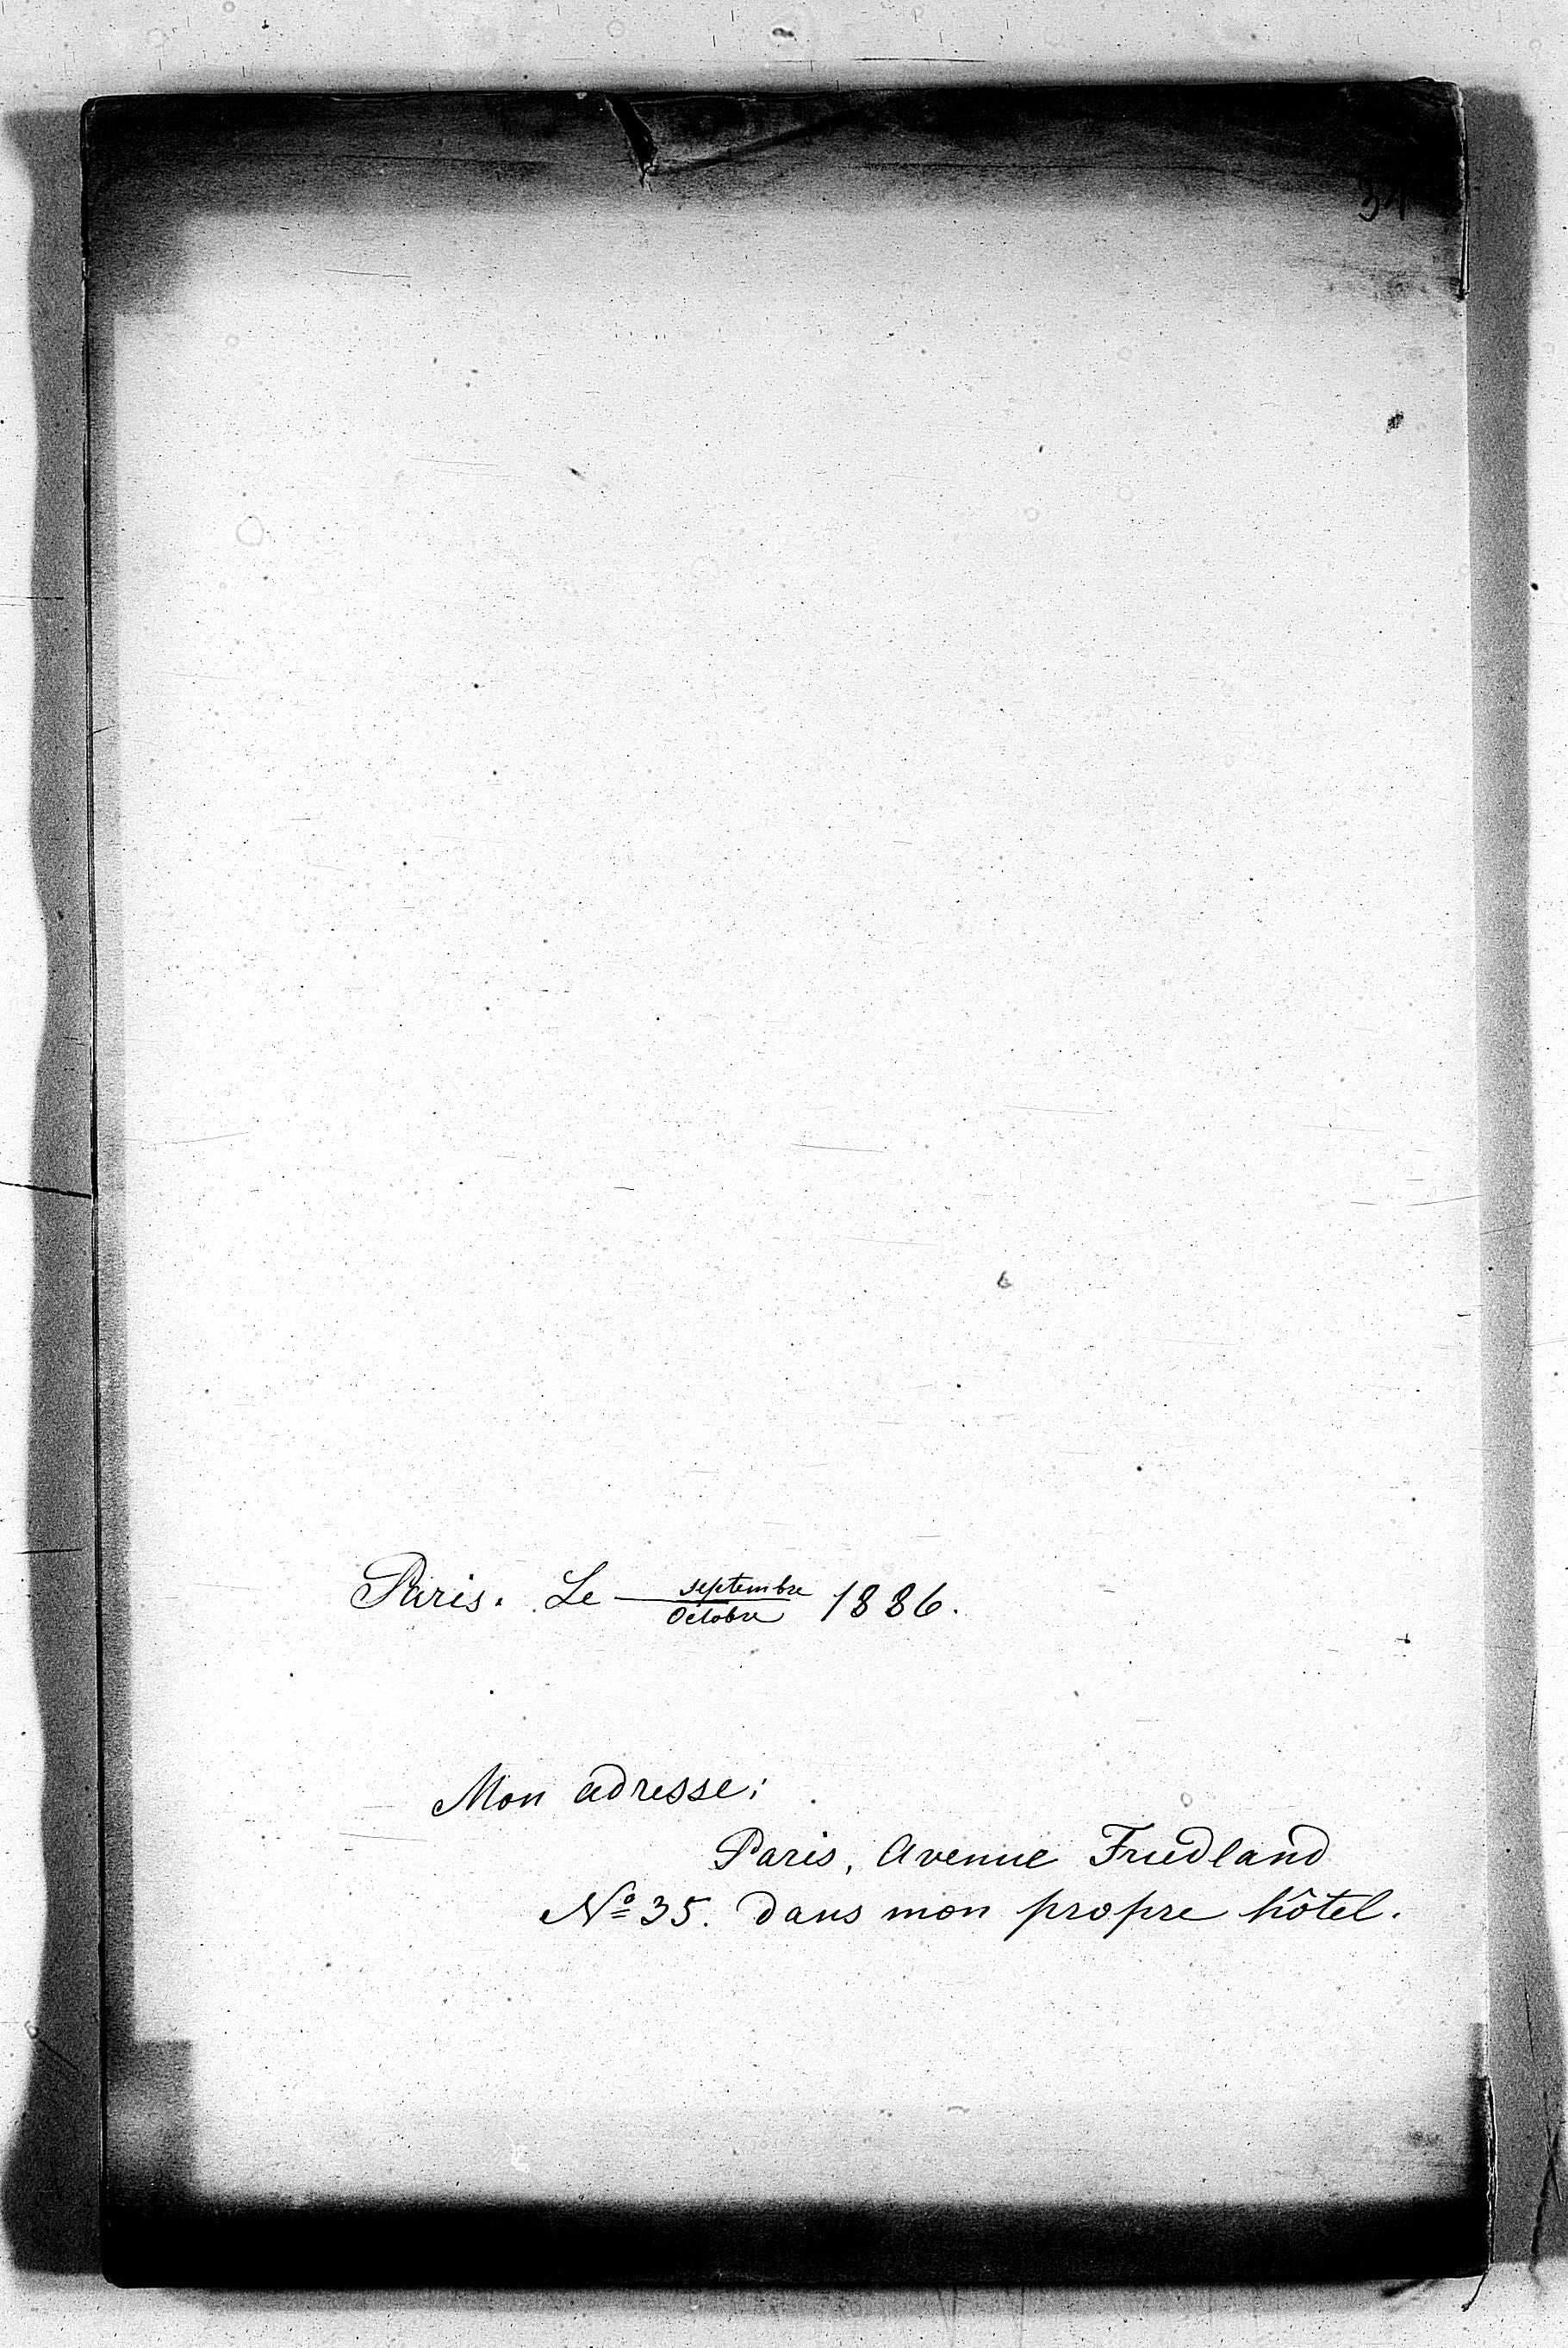 Paris. Le — septembre / Octobre 1886.
Mon adresse:
Paris, Avenue Friedland
№ 35. dans mon propre hôtel.